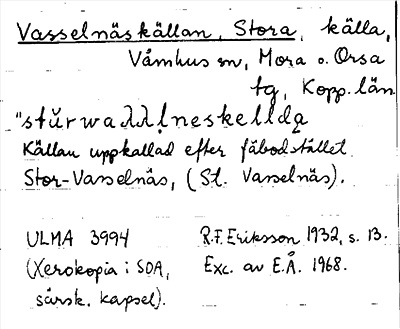 Vasselnäskällan, Stora, källa,
Våmhus sn, Mora o. Orsa
tg, Kopp. län
"stŭrwaλλļneskelldą
Källan uppkallad efter fäbodstället
Stor-Vasselnäs, (St. Vasselnäs).
ULMA 3994 R.F. Eriksson 1932, s. 13.
(Xerokopia i SOA, Exc. av E.Å. 1968.
särsk. kapsel).